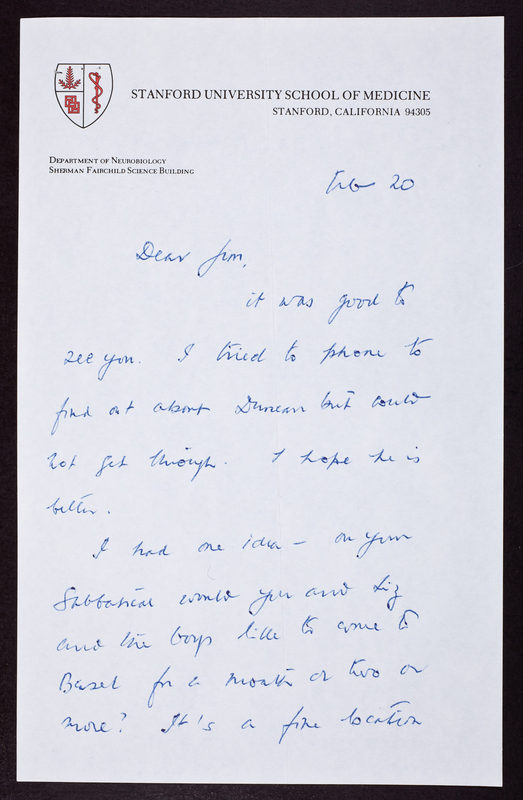 STANFORD UNIVERSITY SCHOOL OF MEDICINE
STANFORD, CALIFORNIA 94305
DEPARTMENT OF NEUROBIOLOGY
SHERMAN FAIRCHILD SCIENCE BUILDING
Feb 20
Dear Jim,
it was good to
see you. I tried to phone to
find out about Duncan but could
not get through. I hope he is
better.
I had one idea – on your
Sabbatical would you and Liz
and the boys like to come to
Basel for a month or two or
more? It's a fine location